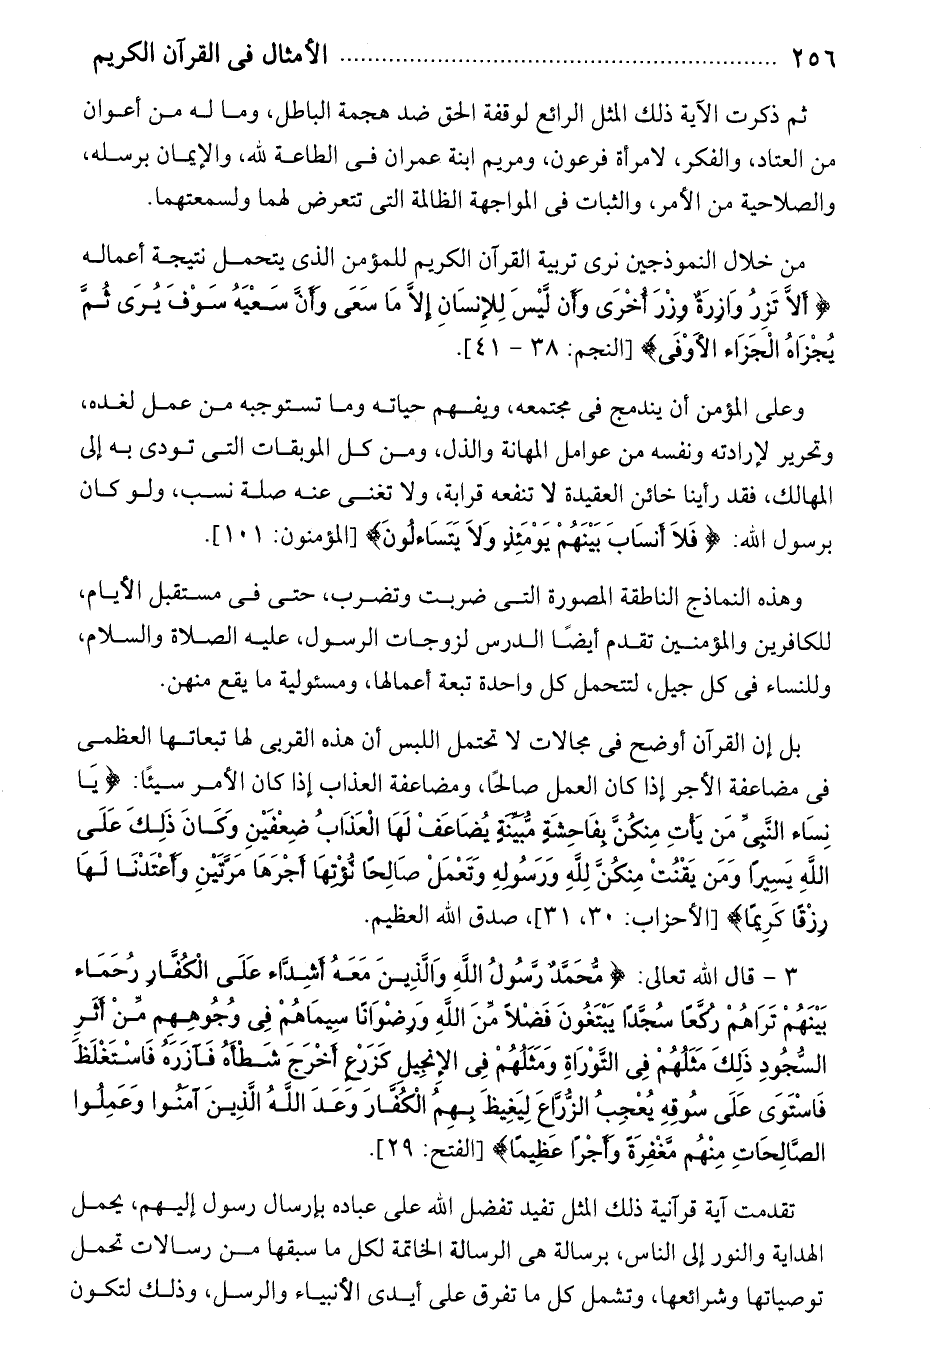 ٢٥٦ ........................................................ الأمثال فى القرآن الكريم
ثم ذكرت الآية ذلك المثل الرائع لوقفة الحق ضد هجمة الباطل، وما له من أعوان
من العتاد، والفكر، لامرأة فرعون، ومريم ابنة عمران فى الطاعة لله، والإيمان برسله،
والصلاحية من الأمر، والثبات فى المواجهة الظالمة التى تتعرض لهما ولسمعتهما.
من خلال النموذجين نرى تربية القرآن الكريم للمؤمن الذى يتحمل نتيجة أعماله
﴿ أَلاَّ تَزِرُ وَازِرَةٌ وِزْرَ أُخْرَى وَأَن لَّيْسَ لِلإِنسَانِ إِلاَّ مَا سَعَى وَأَنَّ سَعْيَهُ سَوْفَ يُرَى ثُمَّ
يُجْزَاهُ الْجَزَاء الأَوْفَى﴾ [النجم: ٣٨ – ٤١].
وعلى المؤمن أن يندمج فى مجتمعه، ويفهم حياته وما تستوجبه من عمل لغده،
وتحرير لإرادته ونفسه من عوامل المهانة والذل، ومن كل الموبقات التى تودى به إلى
المهالك، فقد رأينا خائن العقيدة لا تنفعه قرابة، ولا تغنى عنه صلة نسب، ولو كان
برسول الله: ﴿ فَلاَ أَنسَابَ بَيْنَهُمْ يَوْمَئِذٍ وَلاَ يَتَسَاءلُونَ﴾ [المؤمنون: ١٠١].
وهذه النماذج الناطقة المصورة التى ضربت وتضرب، حتى فى مستقبل الأيام،
للكافرين والمؤمنين تقدم أيضًا الدرس لزوجات الرسول، عليه الصلاة والسلام،
وللنساء فى كل جيل، لتتحمل كل واحدة تبعة أعمالها، ومسئولية ما يقع منهن.
بل إن القرآن أوضح فى مجالات لا تحتمل اللبس أن هذه القربى لها تبعاتها العظمى
فى مضاعفة الأجر إذا كان العمل صالحًا، ومضاعفة العذاب إذا كان الأمر سيئًا: ﴿ يَا
نِسَاء النَّبِيِّ مَن يَأْتِ مِنكُنَّ بِفَاحِشَةٍ مُّبَيِّنَةٍ يُضَاعَفْ لَهَا الْعَذَابُ ضِعْفَيْنِ وَكَانَ ذَلِكَ عَلَى
اللَّهِ يَسِيرًا وَمَن يَقْنُتْ مِنكُنَّ لِلَّهِ وَرَسُولِهِ وَتَعْمَلْ صَالِحًا نُّؤْتِهَا أَجْرَهَا مَرَّتَيْنِ وَأَعْتَدْنَا لَهَا
رِزْقًا كَرِيمًا﴾ [الأحزاب: ٣٠، ٣١]، صدق الله العظيم.
٣ – قال الله تعالى: ﴿ مُّحَمَّدٌ رَّسُولُ اللَّهِ وَالَّذِينَ مَعَهُ أَشِدَّاء عَلَى الْكُفَّارِ رُحَمَاء
بَيْنَهُمْ تَرَاهُمْ رُكَّعًا سُجَّدًا يَبْتَغُونَ فَضْلاً مِّنَ اللَّهِ وَرِضْوَانًا سِيمَاهُمْ فِى وُجُوهِهِم مِّنْ أَثَرِ
السُّجُودِ ذَلِكَ مَثَلُهُمْ فِى التَّوْرَاةِ وَمَثَلُهُمْ فِى الإِنجِيلِ كَزَرْعٍ أَخْرَجَ شَطْأَهُ فَآزَرَهُ فَاسْتَغْلَظَ
فَاسْتَوَى عَلَى سُوقِهِ يُعْجِبُ الزُّرَّاعَ لِيَغِيظَ بِهِمُ الْكُفَّارَ وَعَدَ اللَّهُ الَّذِينَ آمَنُوا وَعَمِلُوا
الصَّالِحَاتِ مِنْهُم مَّغْفِرَةً وَأَجْرًا عَظِيمًا﴾ [الفتح: ٢٩].
تقدمت آية قرآنية ذلك المثل تفيد تفضل الله على عباده بإرسال رسول إليهم، يحمل
الهداية والنور إلى الناس، برسالة هى الرسالة الخاتمة لكل ما سبقها من رسالات تحمل
توصياتها وشرائعها، وتشمل كل ما تفرق على أيدى الأنبياء والرسل، وذلك لتكون